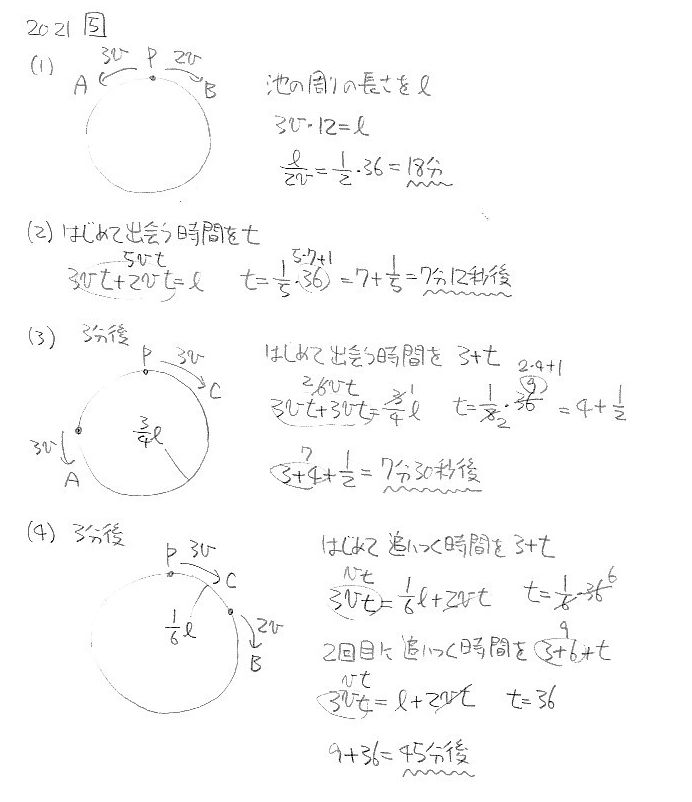 2021 5
(1)
3v P 2v
A B
池の周りの長さをl
3v・12=l
l/2v=1/2・36=18分
(2) はじめて出会う時間をt
5vt
3vt+2vt=l
5・7+1
t=1/5・36=7+1/5=7分12秒後
(3) 3分後
P 3v
C
3v
A
3/4l
はじめて出会う時間を 3+t
2 6vt
3vt+3vt=3/4l
1
2・4+1
9
t=1/8・36=4+1/2
2
7
3+4+1/2=7分30秒後
(4) 3分後
P 3v
C
1/6l
2v
B
はじめて追いつく時間を3+t
vt
3vt=1/6l+2vt t=1/6・36 6
9
2回目に追いつく時間を3+6+t
vt
3vt=l+2vt t=36
9+36=45分後